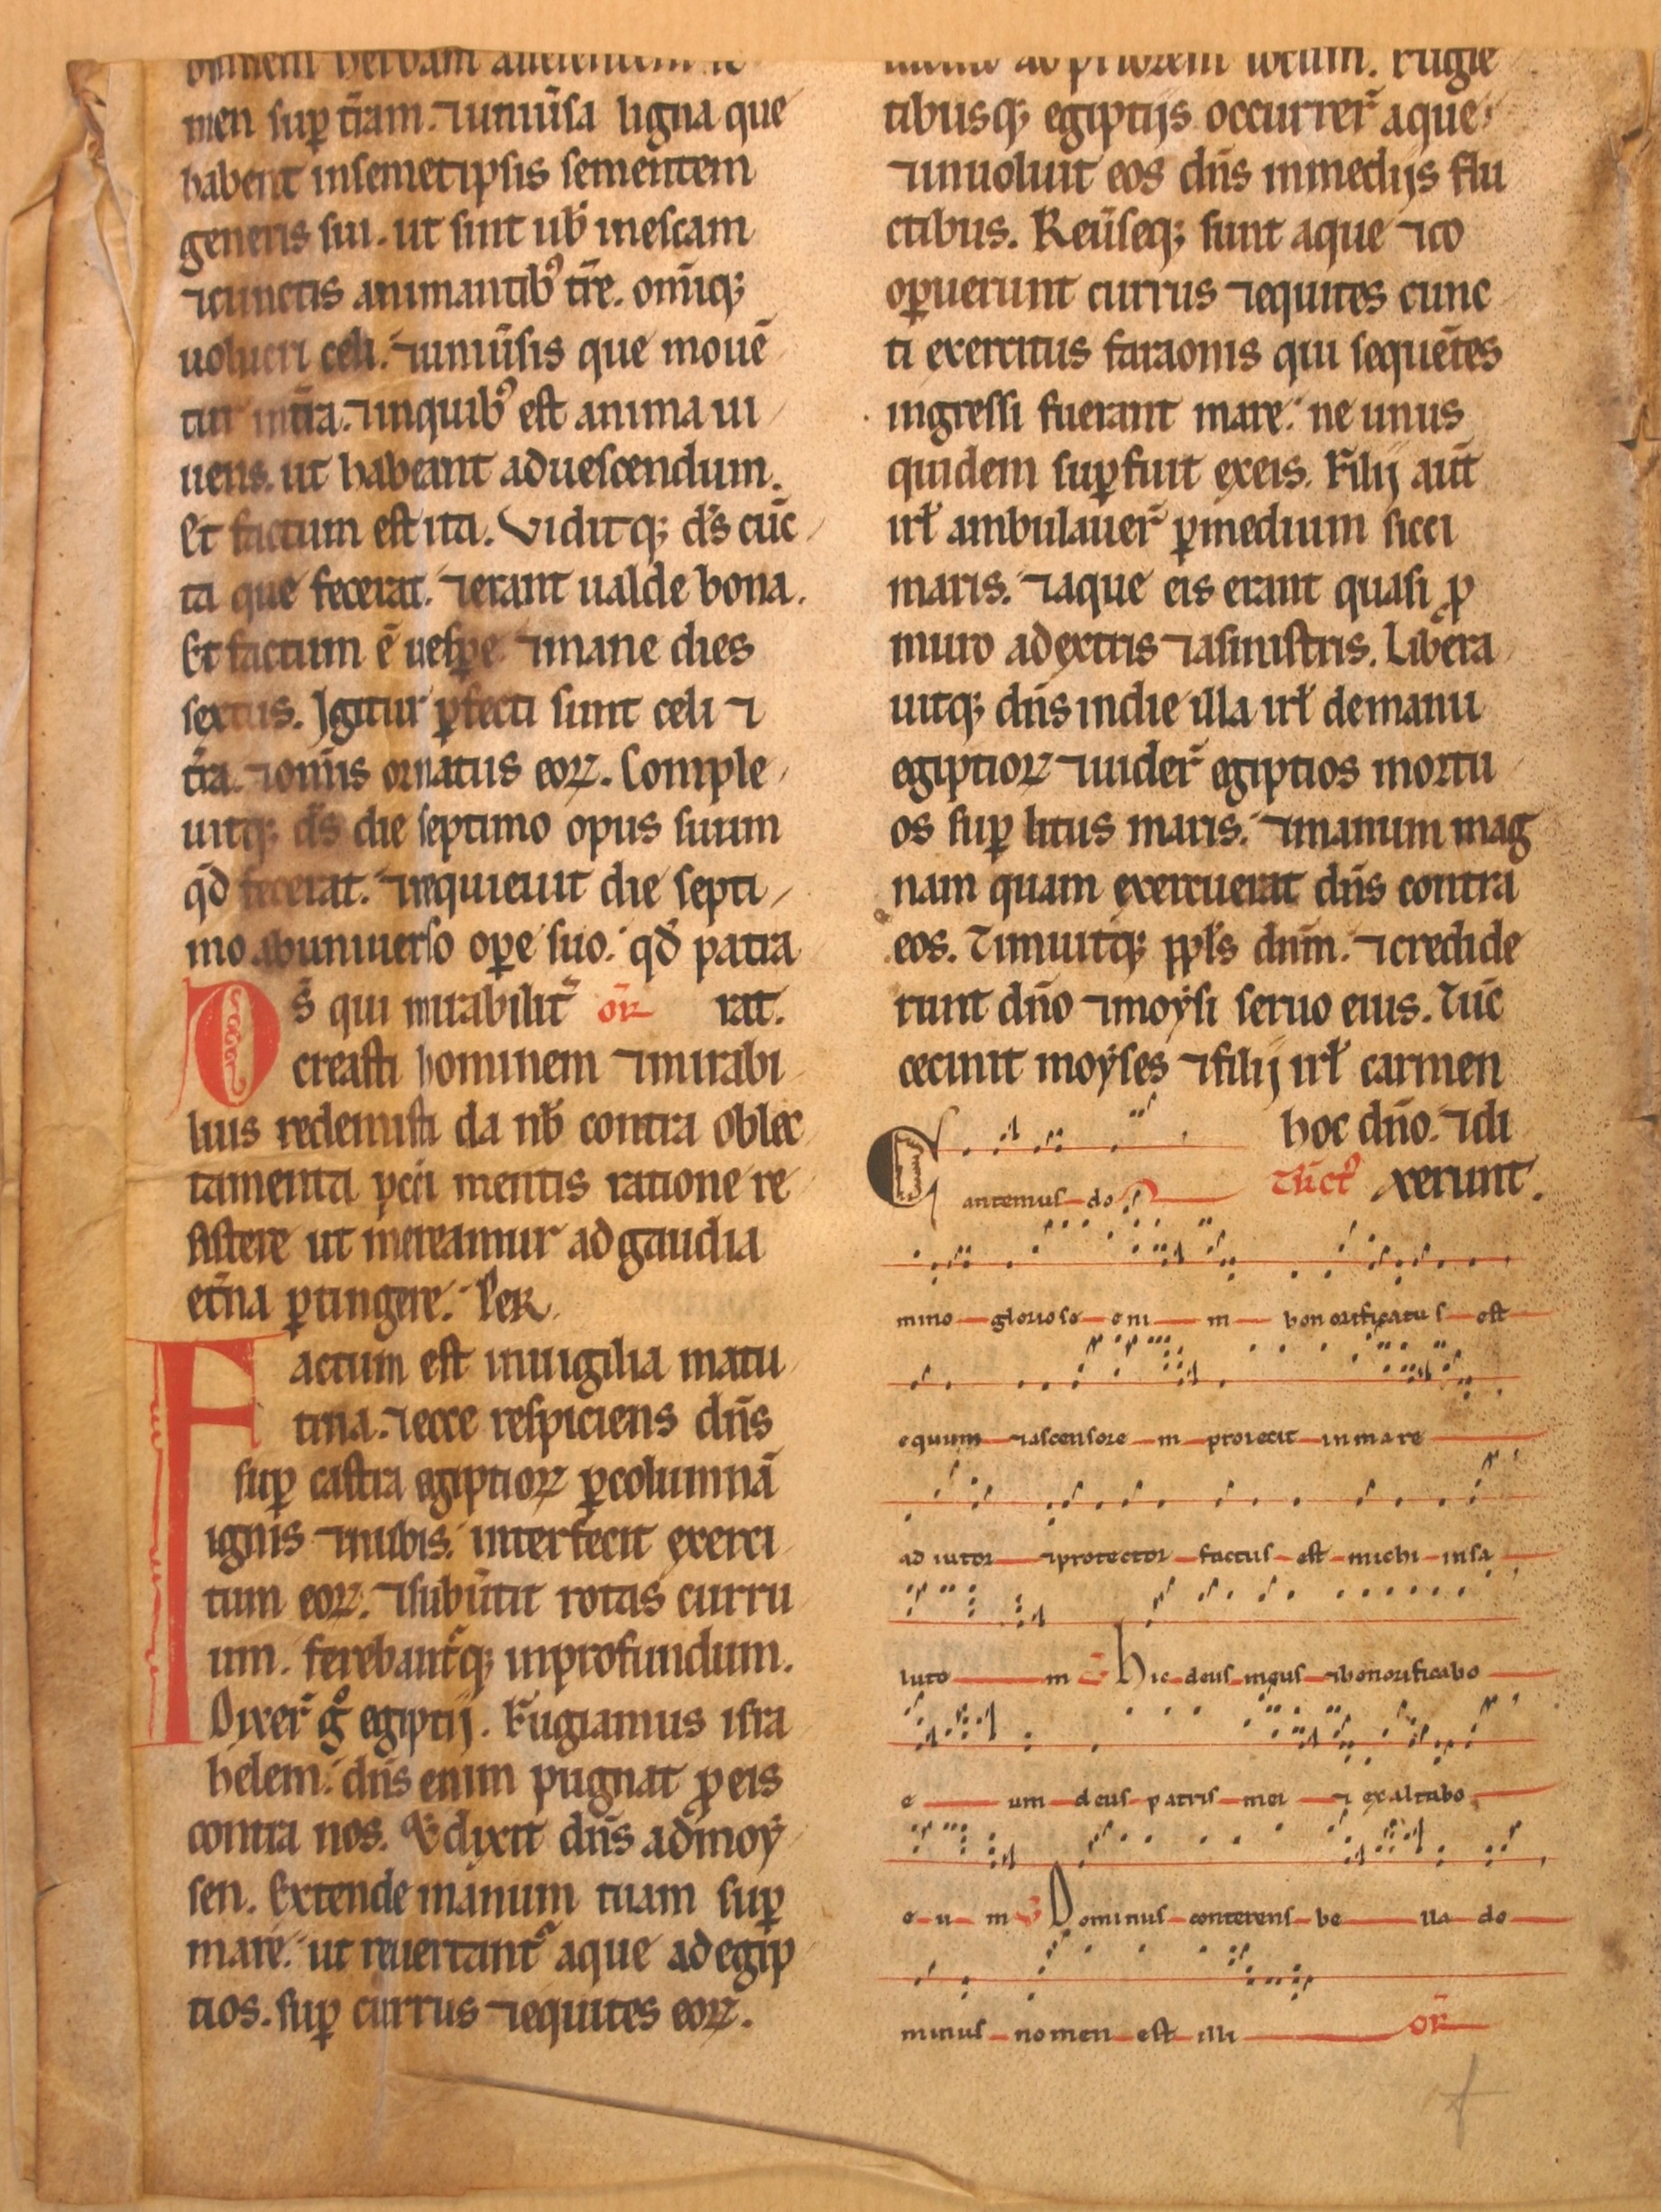 omnem herbam afferentem se
men sup̄ t̄ram. ⁊uniũsa ligna que
habent insemetipsis sementem
generis sui. ut sint uob̄ inescam
⁊cunctis animantib᷒ t̄re. om̄iq;
uolucri celi. ⁊uniũsis que mouē
tur int̄ra. ⁊inquib᷒ est anima ui
uens. ut habeant aduescendum.
Et factum est ita. Viditq; d̄s cūc
ta que fecerat. ⁊erant ualde bona.
Et factum ē uesp̄e ⁊mane dies
sextus. Igitur ꝑfecti sunt celi ⁊
t̄ra. ⁊om̄is ornatus eoꝝ. Comple
uitq; d̄s die septimo opus suum
qd̄ fecerat. ⁊requieuit die septi
mo abuniuerso oꝑe suo. qd̄ patra
rat.
or̄
D̄s qui mirabilit̃
creasti hominem ⁊mirabi
lius redemisti da nob̄ contra oblec
tamenta pcc̄i mentis ratione re
sistere ut mereamur ad gaudia
et̄na ꝑtingere. Per
Factum est inuigilia matu
tina. ⁊ecce respiciens dn̄s
sup̄ castra egiptioꝝ ꝑcolumnā
ignis ⁊nubis. interfecit exerci
tum eoꝝ. ⁊subũtit rotas curru
um. ferebant̃q; inprofundum.
Dixer̄ gͦ egiptij. Fugiamus isra
helem. dn̄s enim pugnat ꝓeis
contra nos. Et dixit dn̄s admoẏ
sen. Extende manum tuam sup̄
mare. ut reuertant̃ aque ad egip
tios. sup̄ currus ⁊equites eoꝝ.
ad priorem locum. Fugie
tibusq; egiptijs occurrer̄ aque
⁊inuoluit eos dn̄s inmedijs flu
ctibus. Reũseq; sunt aque ⁊co
oꝑuerunt currus ⁊equites cunc
ti exercitus faraonis qui sequētes
ingressi fuerant mare. ne unus
quidem sup̄fuit exeis. Filij aūt
isrł ambulauer̄ ꝑmedium sicci
maris. ⁊aque eis erant quasi ꝓ
muro adextris ⁊asinistris. Libera
uitq; dn̄s indie illa isrł demanu
egiptioꝝ ⁊uider̄ egiptios mortu
os sup̄ litus maris. ⁊manum mag
nam quam exercuerat dn̄s contra
eos. Timuitq; ppl̄s dn̄m. ⁊credide
runt dn̄o ⁊moẏsi seruo eius. Tūc
cecinit moẏses ⁊filij isrł carmen
hoc dn̄o. ⁊di
xerunt.
Tr̄ct᷒
Cantemus do
mino glorioso eni m honorificatus est
equum ⁊ascensore m proiecit inmare
ad iutor ⁊protector factus est michi insa
luto m Hic deus meus ⁊honorificabo
e um deus patris mei ⁊ exaltabo
e u m Dominus conterens be lla do
minus nomen est illi or̄